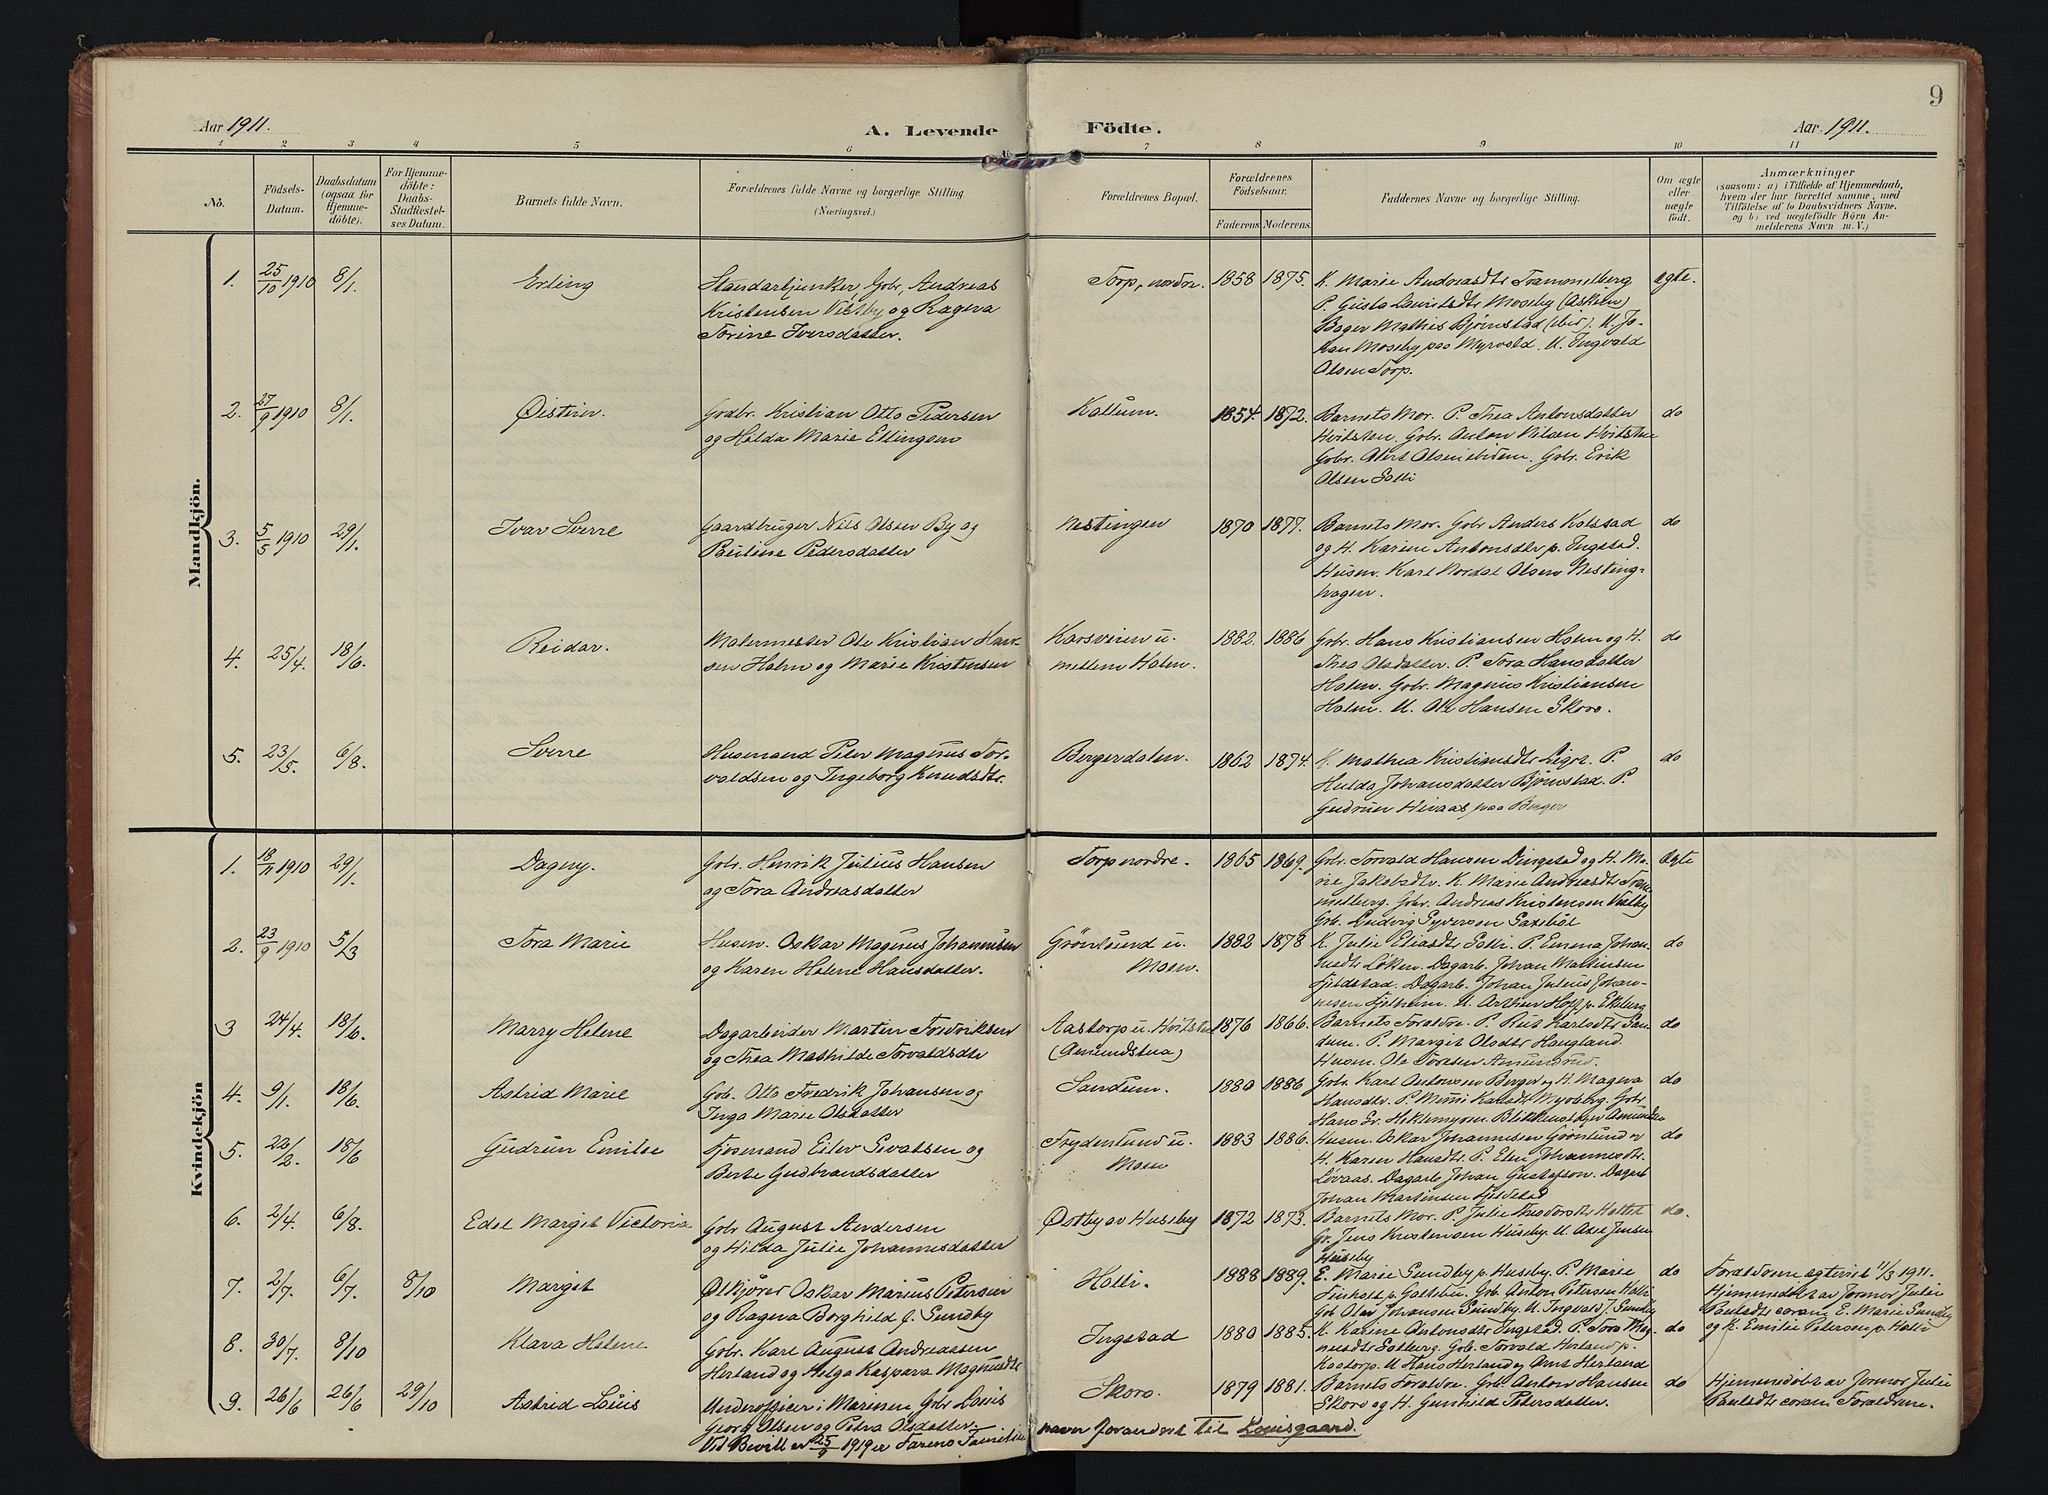 9
Aar 1911.
A. Levende Födte.
Aar 1911.
1 2 3 4 5 6 7 8 9 10 11
No.
Födsels-
Datum.
Daabsdatum
(ogsaa for
Hjemme-
döbte).
For Hjemme-
döbte:
Daabs-
Stadfæstel-
ses Datum.
Barnets fulde Navn.
Forældrenes fulde Navne og borgerlige Stilling
(Næringsvei.)
Forældrenes Bopæl.
Forældrenes
Födselsaar.
Faderens Moderens
Faddernes Navne og borgerlige Stilling.
Om ægte
eller
uægte
födt.
Anmærkninger
(saasom: a) i Tilfælde af Hjemmedaab,
hvem der har forrettet samme, med
Tilföielse af to Daabsvidners Navne,
og b) ved uægtefödte Börn An-
melderens Navn m. V.)
Mandkjön.
1. 25/10 1910 8/1. Erling
Standartjunker Gbr. Andreas
Kristensen Vestby og Ragna
Torine Iversdatter.
Torp, nordre. 1858 1875.
K. Marie Andreasdtr Trammelberg
P. Gusta Lauritsdtr Moseby (Askim)
Bager Mathis Bjørnstad (ibid). U. Jo-
han Moseby paa Myrvold. U. Ingvald
Olsen Torp.
ægte.
2. 27/9 1910 8/1. Øistein.
Gaardbr. Kristian Otto Pedersen
og Hilda Marie Ellingsen
Kallum. 1854. 1872.
Barnets Mor. P. Thea Antonsdatter
Hvitsten. Gbr. Anton Nilsen Hvitsten
Gbr. Olsen ibidem. Gbr. Erik
Olsen Solli
do
3. 5/5 1910 29/1. Ivar Sverre
Gaardbruger Nils Olsen By og
Pauline Pedersdatter
Nestingen 1870 1877.
Barnets Mor. Gbr Anders Kolstad
og H. Karine Antonsdtr p. Ingstad.
Husm. Karl Nordal Olsen Nesting-
hagen.
do
4. 25/4. 18/6. Reidar.
Malermester Ole Kristian Han-
sen Holm og Marie Kristensen
Karsviren u.
mellem Holm. 1882. 1886
Gbr. Hans Kristiansen Holm og H.
Thea Olsdatter. P. Tora Hansdatter
Holm. Gbr. Magnus Kristiansen
Holm. U. Ole Hansen Skoro.
do
5. 23/5. 6/8. Sverre
Husmand Peter Magnus Tor-
valdsen og Ingeborg Knudsdtr.
Bergerdalen. 1862 1874.
K. Mathea Kristiansdtr P.
Hulda Johansdatter Bjørnstad. P.
Gudrun Hivaas paa Berger
do
Kvindekjön
1. 18/11 1910 29/1. Dagny.
Gbr. Henrik Julius Hansen
og Tora Andreasdatter
Torp nordre. 1865 1869.
Gbr. Torvald Hansen Dingstad og H. Ma-
rie Jakobsdtr. K. Marie Andreasdtr Tram-
melberg. Gbr. Andreas Kristensen Vestby
Gbr. Ludvig Syversen
Ægte
2. 23/9 1910 5/3 Tora Marie
Husm. Oskar Magnus Johannesen
og Karen Helene Hansdatter.
Grønlund u.
Moen. 1882 1878
K. Julie Eliasdtr Solli. P. Emma Johan-
nesdtr Løken. Dagarb. Johan Martinsen
Fjeldstad. Dagarb. Johan Julius Johan-
nesen Fjelheim. U. Arthur Hoff p. Ekeberg
do
3 24/4. 18/6. Marry Helene
Dagarbeider Martin Fredriksen
og Thea Mathilde Torvaldsdtr
Aastorp u. Hvitsten
(Amundstua) 1876 1866.
Barnets Forældre. P. Rut Karlsdtr San-
dum. P. Margit Olsdtr Haugland.
Husm. Ole Torstsen Amundrud.
do
4. 9/1. 18/6. Astrid Marie
Gbr. Otto Fredrik Johansen og
Inga Marie Olsdatter
Sandum. 1880 1886
Gbr. Karl Antonsen Berger og H. Magna
Hansdtr. P. Minni Myrberg. Gbr.
Hans Gr. Blikkenslager Amundsen
do
5. 22/2. 18/6 Gudrun Emilie
Fjøsmand Eilev Sevatsen og
Berte Gudbrandsdatter
Frydenlund u.
Moen 1883 1886.
Husm. Oskar Johannesen Grønlund og
H. Karen Hansdtr. P. Elen Johannesdtr.
Løvaas. Dagarb Johan Gustafson. Dagarb
Johan Martinsen Fjeldstad
do
6. 2/4. 6/8. Edel Margit Victoria
Gbr August Andersen
og Hilda Julie Johannesdatter
Østby av Huseby 1872 1873.
Barnets Mor. P. Julie Theodorsdtr Holtet
Gr. Jens Kristensen Huseby. U. Axel Jensen
Huseby
do.
7. 2/7. 6/7. 8/10 Margit
Ølkjører Oskar Marius Petersen
og Ragna Borghild f. Sundby
Holli. 1888 1889.
E. Marie Sundby p. Huseby. P. Marie
Finholt p. Galtebu. Gbr. Anton Petersen Holli
Gbr Olav Johansen Sundby. U. Ingvald J. Sundby
do
Forældrene egteviet 11/3 1911.
Hjemmedøbt av Jormor Julie
Paulsdtr coram E. Marie Sundby
og K. Emilie Petersen p. Holli
8. 30/7. 8/10 Klara Helene
Gbr. Karl August Andreassen
Herland og Helga Kaspara Magnusdtr
Ingstad 1880 1885.
K. Karine Antonsdtr Ingstad. P. Tora Mag-
nusdtr Solberg. Gbr. Torvald Herland p.
Kaatorp. U Hans Herland og Arnt Herland
do
9. 26/6 26/6 29/10 Astrid Louis
Underofficer i Marinen Gbr Louis
Georg Olsen og Petra Olsdatter.
Skoro. 1879 1881.
Barnets Forældre. Gbr. Anton Hansen
Skoro og H. Gunhild Petersdatter.
do
Hjemmedøbt av Jormor Julie
Paulsdtr coram Forældrene.
Ved Bevill. er 25/9 1919 er Farens Familie
navn forandret til Louisgaard.